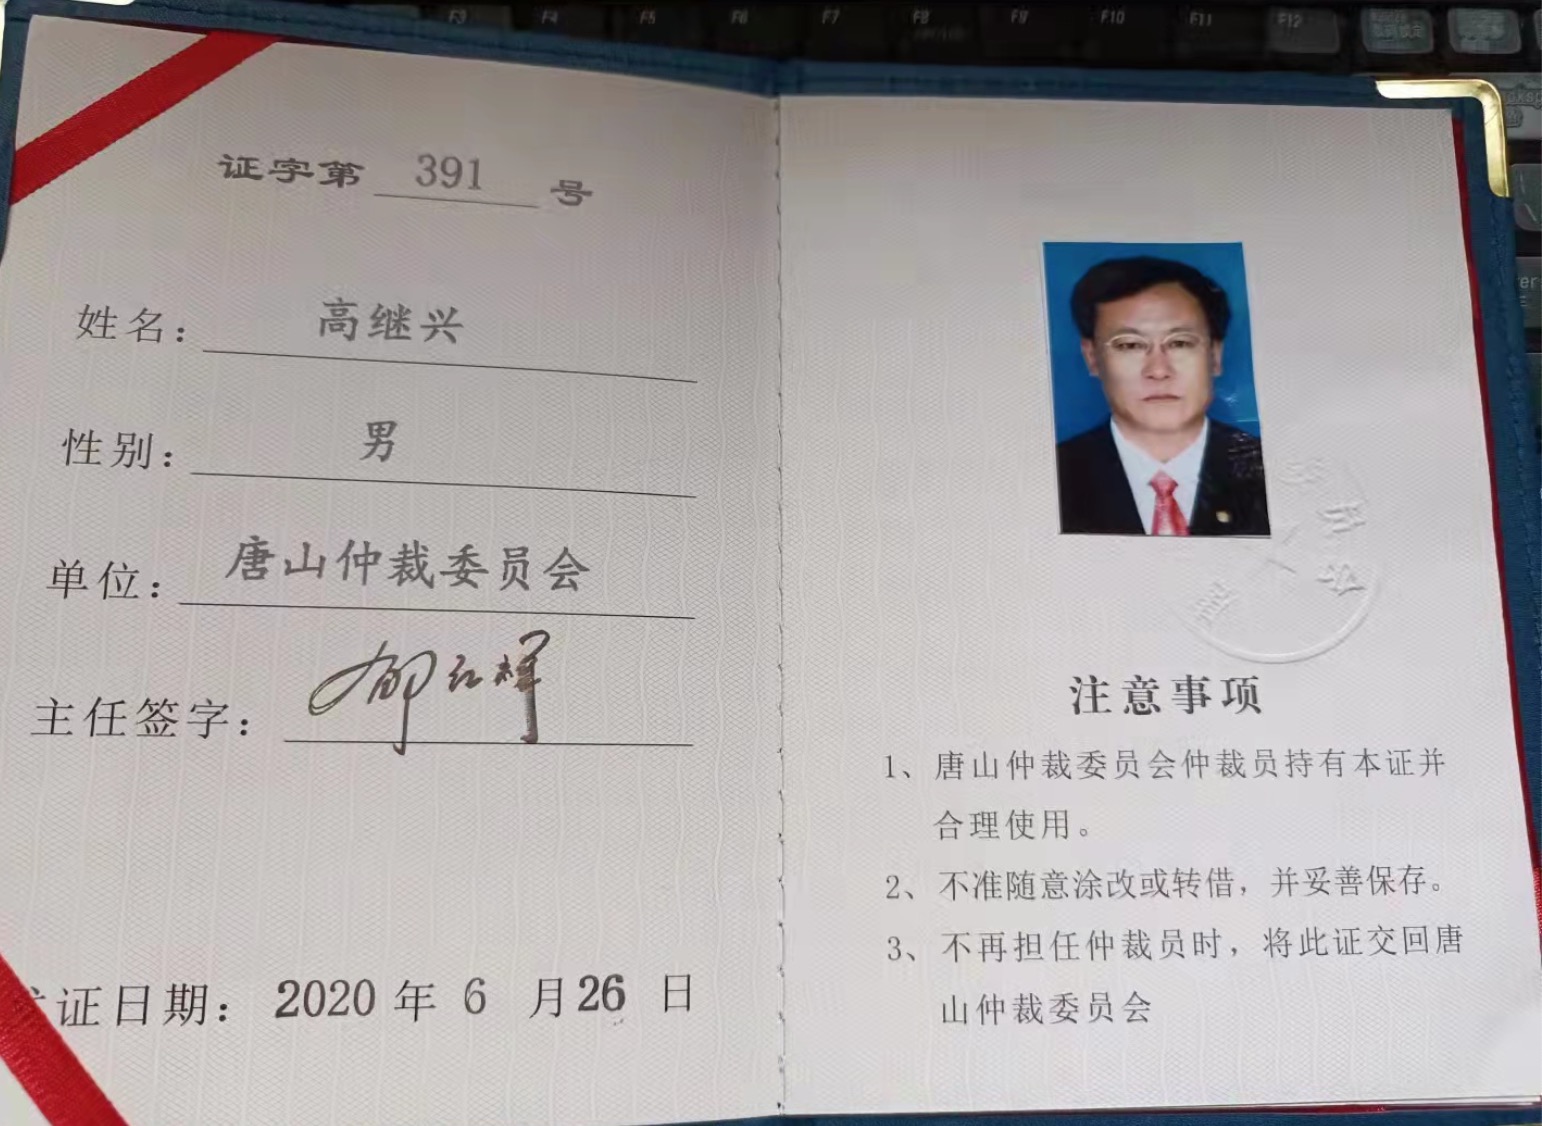 F3 F4 F5 F6 F7 F8 F9 F10 F11 F12
证字第 391 号
姓名： 高继兴
性别： 男
单位： 唐山仲裁委员会
主任签字：
证日期： 2020 年 6 月 26 日
注意事项
1、唐山仲裁委员会仲裁员持有本证并
合理使用。
2、不准随意涂改或转借，并妥善保存。
3、不再担任仲裁员时，将此证交回唐
山仲裁委员会